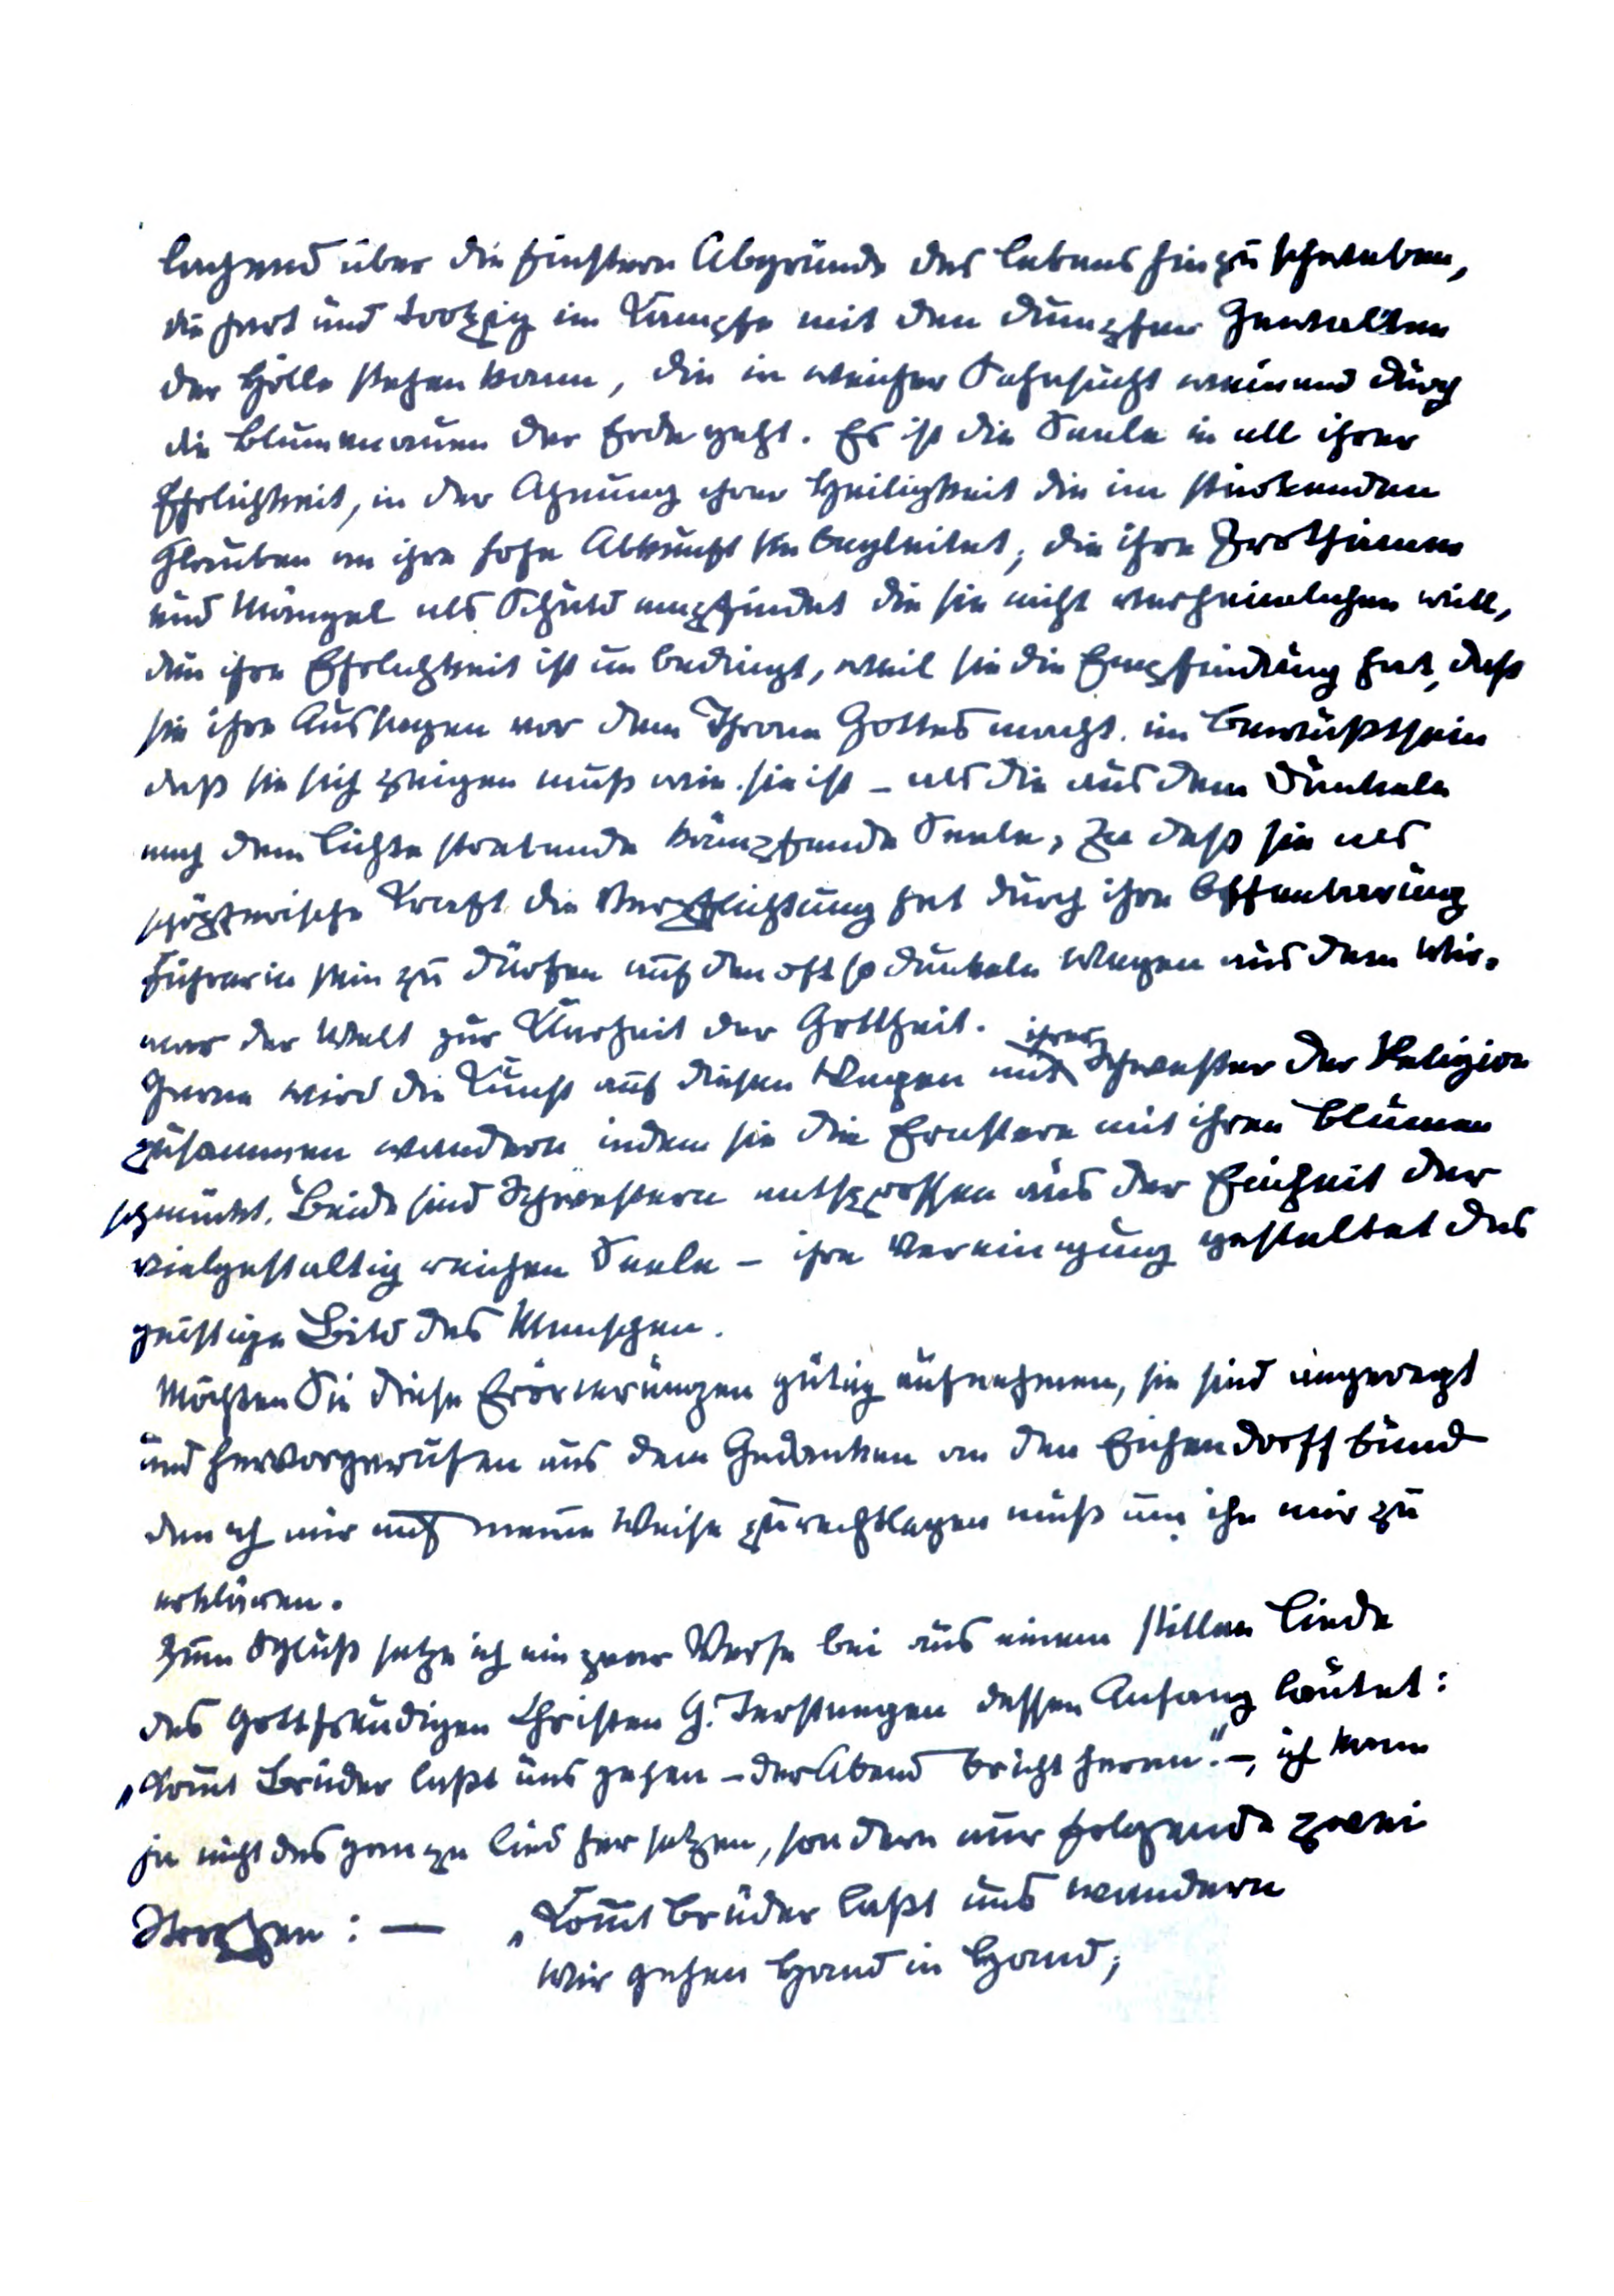 lachend über die finstern Abgründe des Lebens hinzuschweben,
die hart und trotzig im Kampfe mit den dumpfen Gewalten
der Hölle stehen kann, die in weicher Sehnsucht weinend durch
die Blumenauen der Erde geht. Es ist die Seele in all ihrer
Ehrlichkeit, in der Ahnung ihrer Heiligkeit die im stärkenden
Glauben an ihre hohe Abkunft sie begleitet, die ihre Irrthümer
und Mängel als Schuld empfindet die sie nicht verheimlichen will,
den ihre Ehrlichkeit ist unbedingt, weil sie die Empfindung hat, daß
sie ihre Aussagen vor dem Thron Gottes macht. im Bewußtsein
daß sie sich zeigen muß wie sie ist – als die aus dem Dunkeln
nach dem Lichte strebende kämpfende Seele, daß sie als
schöpferische Kraft die Verpflichtung hat durch ihre Offenbarung
Führerin sein zu dürfen auf den oft so dunkeln Wegen aus dem Wir-
war der Welt zur Klarheit der Gottheit.
Gerne wird die Kunst auf diesen Wegen mit ihrer Schwester der Religion
zusammen wandern indem sie die Ernstere mit ihren Blumen
schmückt. Beide sind Schwestern entsprossen aus der Einheit der
vielgestaltig reichen Seele – ihre Vereinigung gestaltet das
geistige Bild des Menschen.
Möchten Sie diese Erörterungen gütig aufnehmen, sie sind angeregt
und hervorgerufen aus dem Gedanken an den Eichendorffbund
den ich mir auf meine Weise zurechtlegen muß um ihn mir zu
erklären.
Zum Schluß setze ich ein paar Verse bei aus einem stillen Liede
des gottfreudigen Christen G. Terstegen dessen Anfang lautet:
„Komt Brüder laßt uns gehen – der Abend bricht heran." –, ich kann
ja nicht das ganze Lied her setzen, sondern nur folgende zwei
Strophen : — „Komt Brüder laßt uns wandern
Wir gehen Hand in Hand;